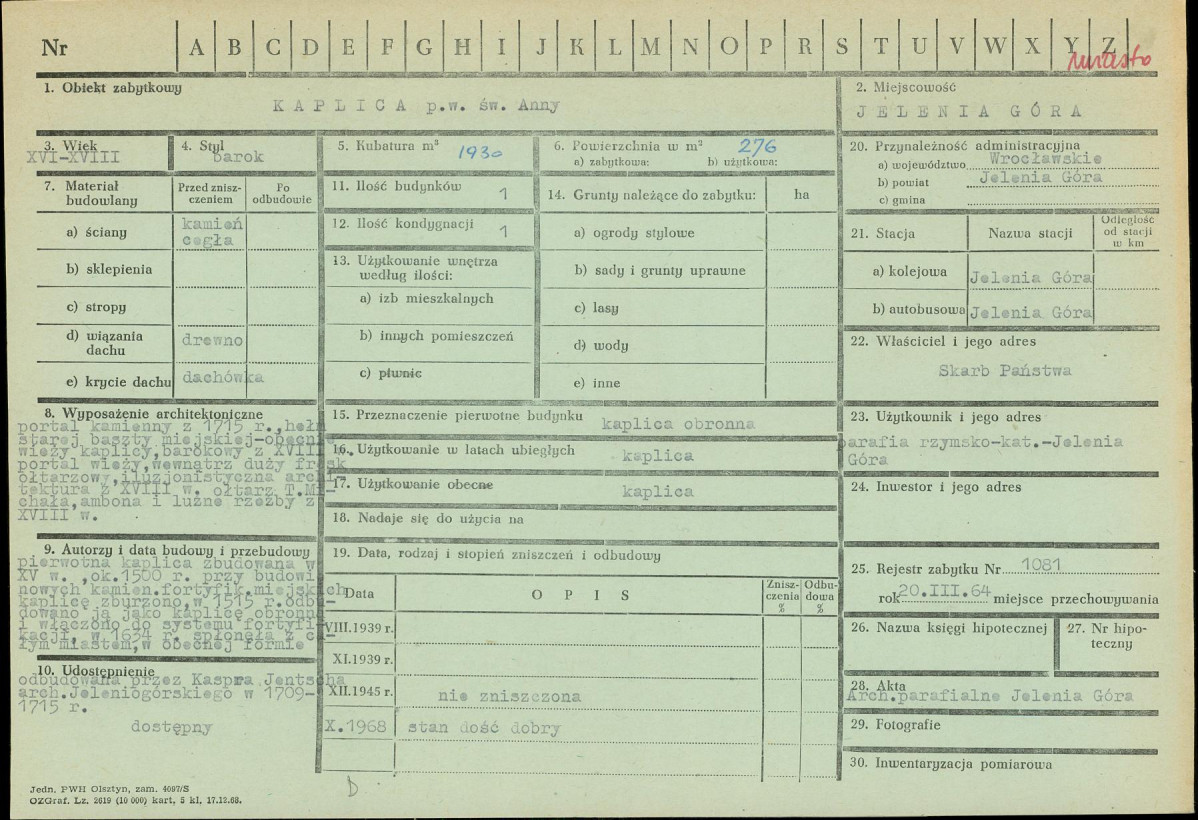 Nr A B C D E F G H I J K L M N O P R S T U V W X Y Z
miasto
1. Obiekt zabytkowy
KAPLICA p.w. św. Anny
2. Miejscowość
JELENIA GÓRA
3. Wiek
XVI-XVIII
4. Styl
barok
5. Kubatura m³ 1930
6. Powierzchnia w m² 276
a) zabytkowa: b) użytkowa:
7. Materiał budowlany
Przed zniszczeniem
Po odbudowie
a) ściany
kamień
cegła
b) sklepienia
c) stropy
d) wiązania dachu
drewno
e) krycie dachu
dachówka
8. Wyposażenie architektoniczne
portal kamienny z 1715 r.,hełm
starej baszty miejskiej-obecnie
wieży kaplicy,barokowy z XVIII w.
portal wieży,wewnątrz duży fresk
ołtarzowy,iluzjonistyczna archi-
tektura z XVIII w. ołtarz T.Mi-
chała,ambona i luźne rzeźby z
XVIII w.
9. Autorzy i data budowy i przebudowy
pierwotna kaplica zbudowana w
XV w. ,ok.1500 r. przy budowi
nowych kamien.fortyfik.miejskich
kaplicę zburzono,w 1515 r.odbu-
dowano ją jako kaplicę obronną
i włączono do systemu fortyfi-
kacji, w 1634 r. spłonęła z ca-
łym miastem,w obecnej formie
10. Udostępnienie
odbudowana przez Kaspra Jentscha
arch.Jeleniogórskiego w 1709-
1715 r.
dostępny
11. Ilość budynków 1
12. Ilość kondygnacji 1
13. Użytkowanie wnętrza
według ilości:
a) izb mieszkalnych
b) innych pomieszczeń
c) piwnic
14. Grunty należące do zabytku: ha
a) ogrody stylowe
b) sady i grunty uprawne
c) lasy
d) wody
e) inne
15. Przeznaczenie pierwotne budynku
kaplica obronna
16. Użytkowanie w latach ubiegłych
kaplica
17. Użytkowanie obecne
kaplica
18. Nadaje się do użycia na
19. Data, rodzaj i stopień zniszczeń i odbudowy
Data
OPIS
Zniszczenia %
Odbudowa %
VIII.1939 r.
XI.1939 r.
XII.1945 r.
nie zniszczona
X.1968
stan dość dobry
20. Przynależność administracyjna
a) województwo Wrocławskie
b) powiat Jelenia Góra
c) gmina
21. Stacja
Nazwa stacji
Odległość
od stacji
w km
a) kolejowa Jelenia Góra
b) autobusowa Jelenia Góra
22. Właściciel i jego adres
Skarb Państwa
23. Użytkownik i jego adres
parafia rzymsko-kat.-Jelenia
Góra
24. Inwestor i jego adres
25. Rejestr zabytku Nr 1081
rok 20.III.64 miejsce przechowywania
26. Nazwa księgi hipotecznej
27. Nr hipoteczny
28. Akta
Arch.parafialne Jelenia Góra
29. Fotografie
30. Inwentaryzacja pomiarowa
Jedn. PWH Olsztyn, zam. 4097/S
OZGraf. Lz. 2619 (10 000) kart, 5 kl, 17.12.68.
D